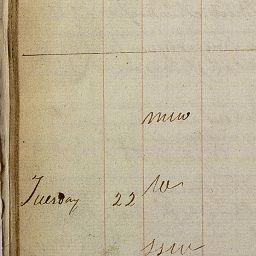 nnw
Tuesday 22 W
ssw